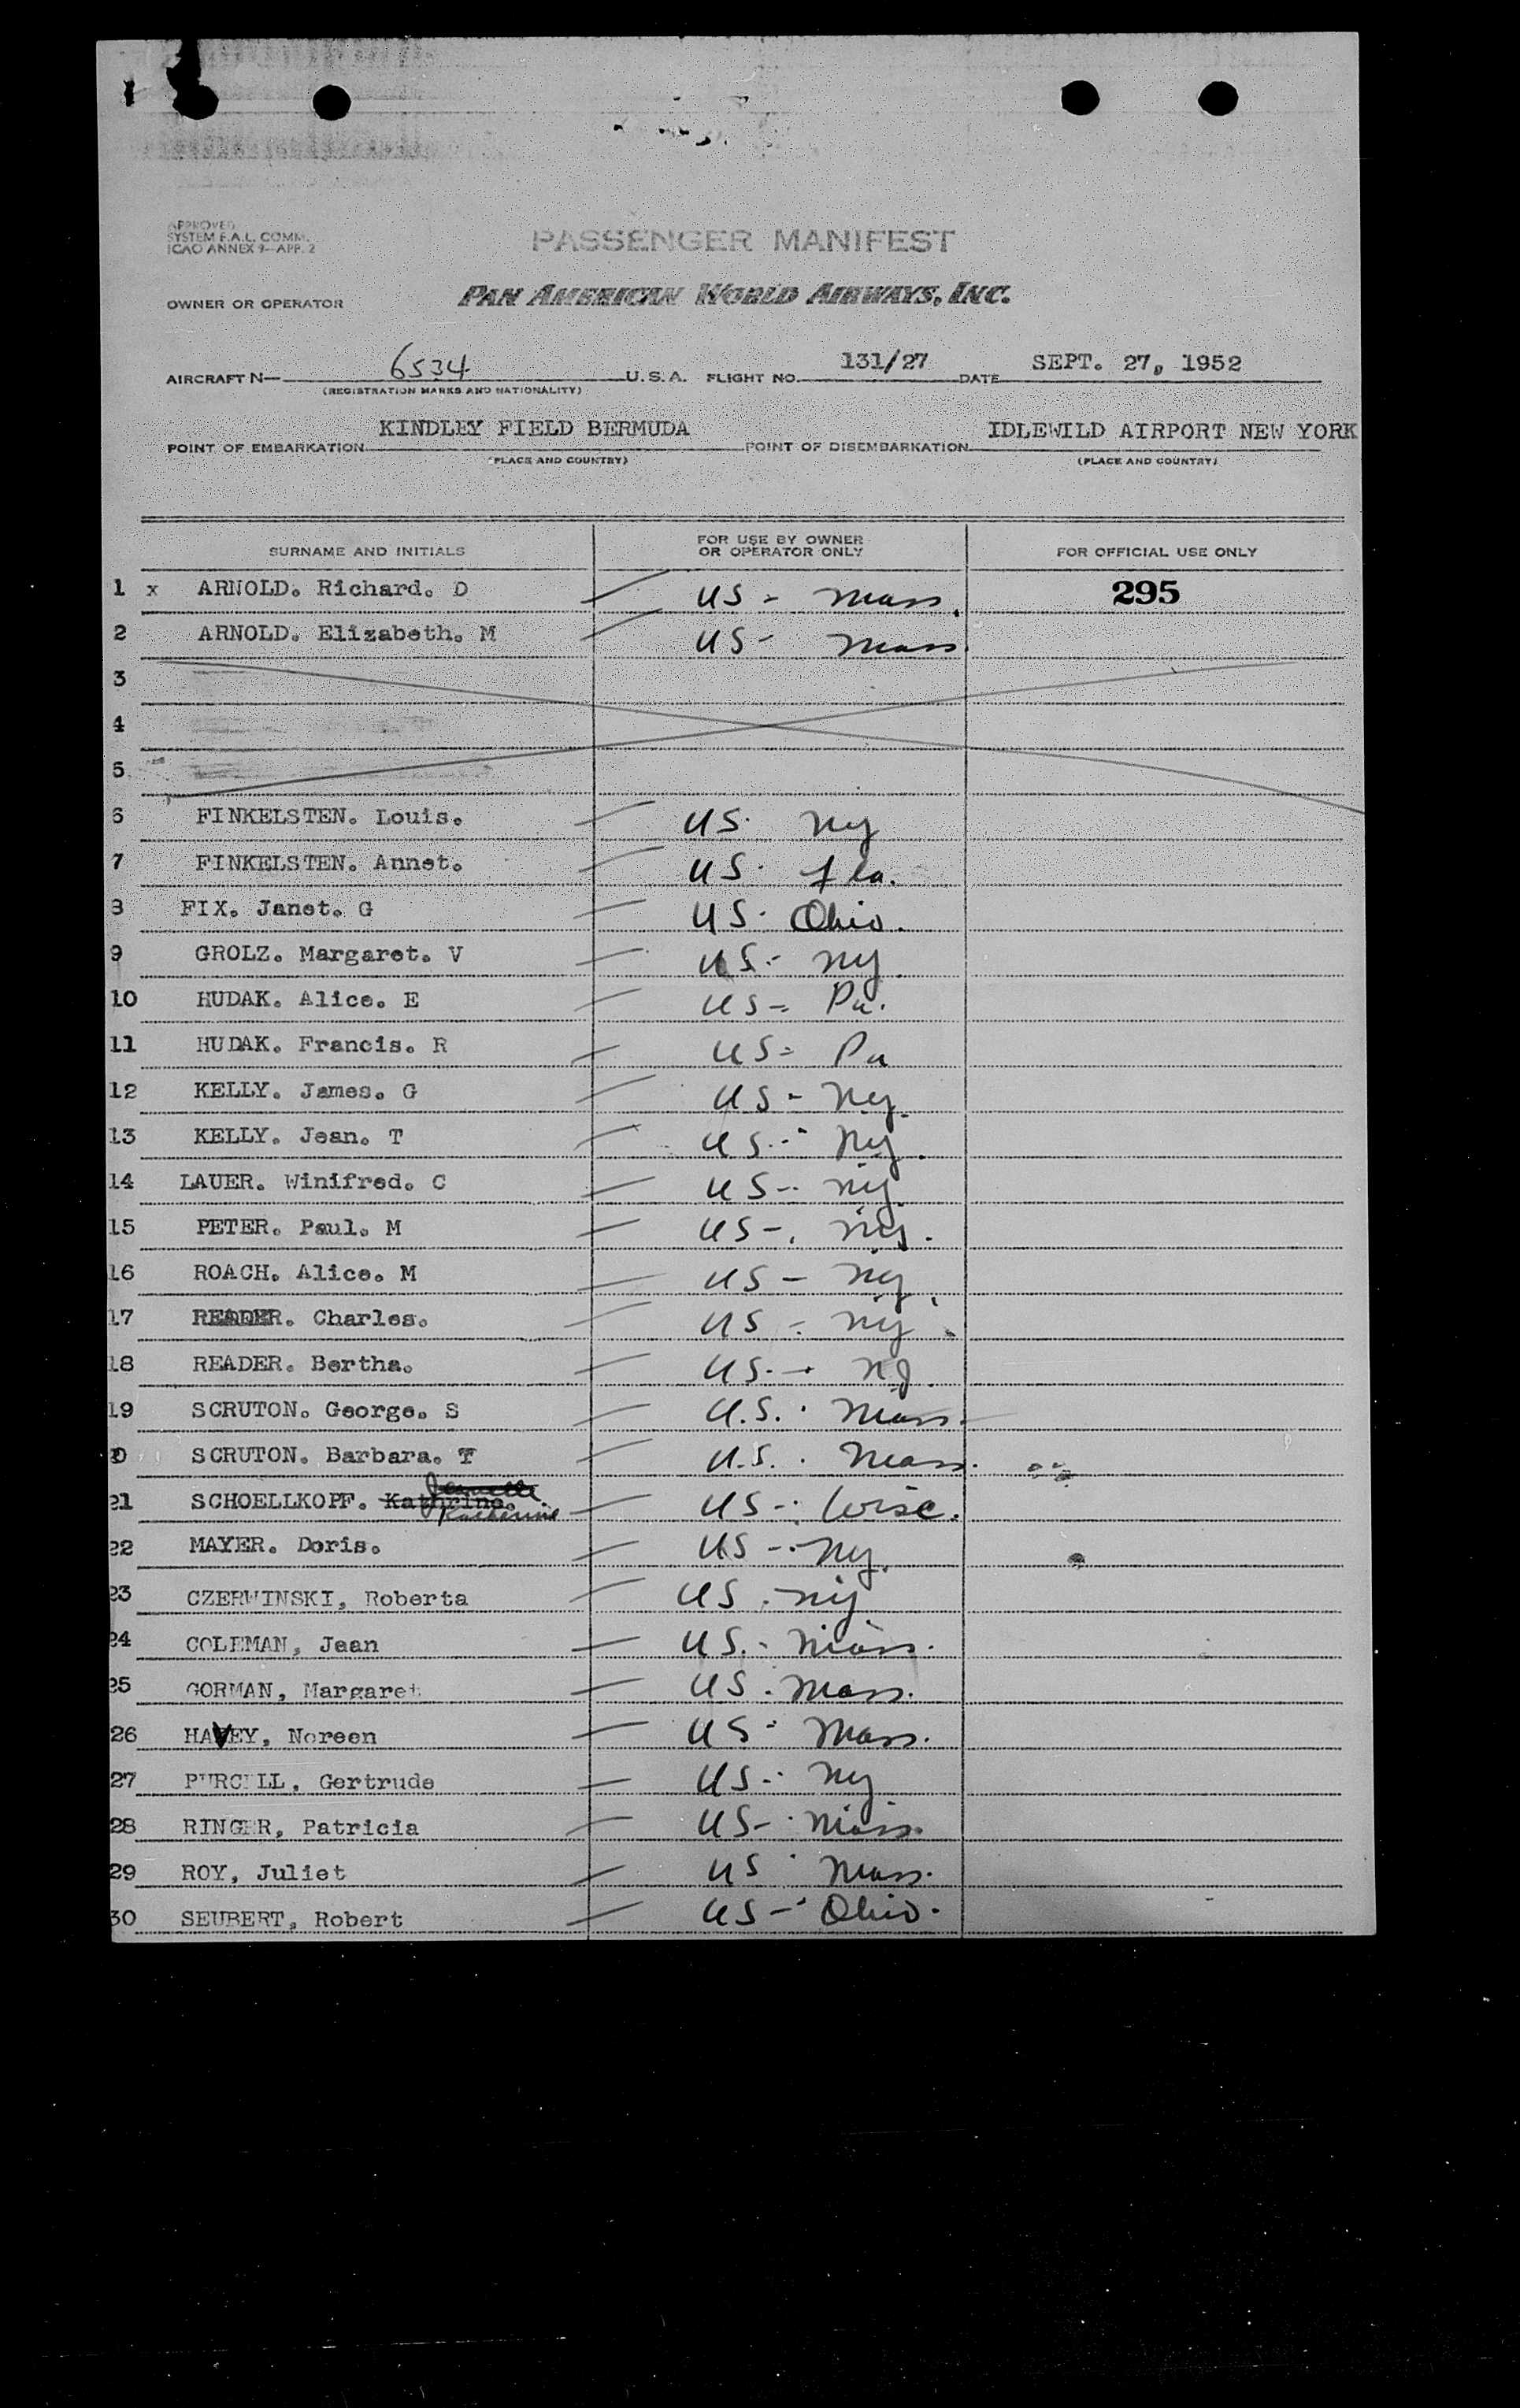 APPROVED
SYSTEM F.A.L. COMM.
ICAO ANNEX 9—APP. 2
PASSENGER MANIFEST
OWNER OR OPERATOR PAN AMERICAN WORLD AIRWAYS, INC.
AIRCRAFT N— 6534 U.S.A. FLIGHT NO. 131/27 DATE SEPT. 27, 1952
(REGISTRATION MARKS AND NATIONALITY)
POINT OF EMBARKATION KINDLEY FIELD BERMUDA POINT OF DISEMBARKATION IDLEWILD AIRPORT NEW YORK
(PLACE AND COUNTRY) (PLACE AND COUNTRY)
SURNAME AND INITIALS FOR USE BY OWNER OR OPERATOR ONLY FOR OFFICIAL USE ONLY
1 x ARNOLD. Richard. D US - Mass. 295
2 ARNOLD. Elizabeth. M US - Mass.
3
4
5
6 FINKELSTEN. Louis. US. Ny
7 FINKELSTEN. Annet. US. Fla.
8 FIX. Janet. G US. Ohio.
9 GROLZ. Margaret. V US - Ny.
10 HUDAK. Alice. E US - Pa.
11 HUDAK. Francis. R US - Pa
12 KELLY. James. G US - Ny.
13 KELLY. Jean. T US - Ny.
14 LAUER. Winifred. C US - Ny
15 PETER. Paul. M US - Ny.
16 ROACH. Alice. M US - Ny
17 READER. Charles. US - Ny
18 READER. Bertha. US - NJ
19 SCRUTON. George. S U.S. Mass.
20 SCRUTON. Barbara. T U.S. Mass.
21 SCHOELLKOPF. Kathrine. Katherine US - Wisc.
22 MAYER. Doris. US - Ny.
23 CZERWINSKI, Roberta US. Ny
24 COLEMAN, Jean US. - Mass.
25 GORMAN, Margaret US. Mass.
26 HAVEY, Noreen US - Mass.
27 PURCELL, Gertrude US - Ny
28 RINGER, Patricia US - Mass.
29 ROY, Juliet US Mass.
30 SEUBERT, Robert US - Ohio.